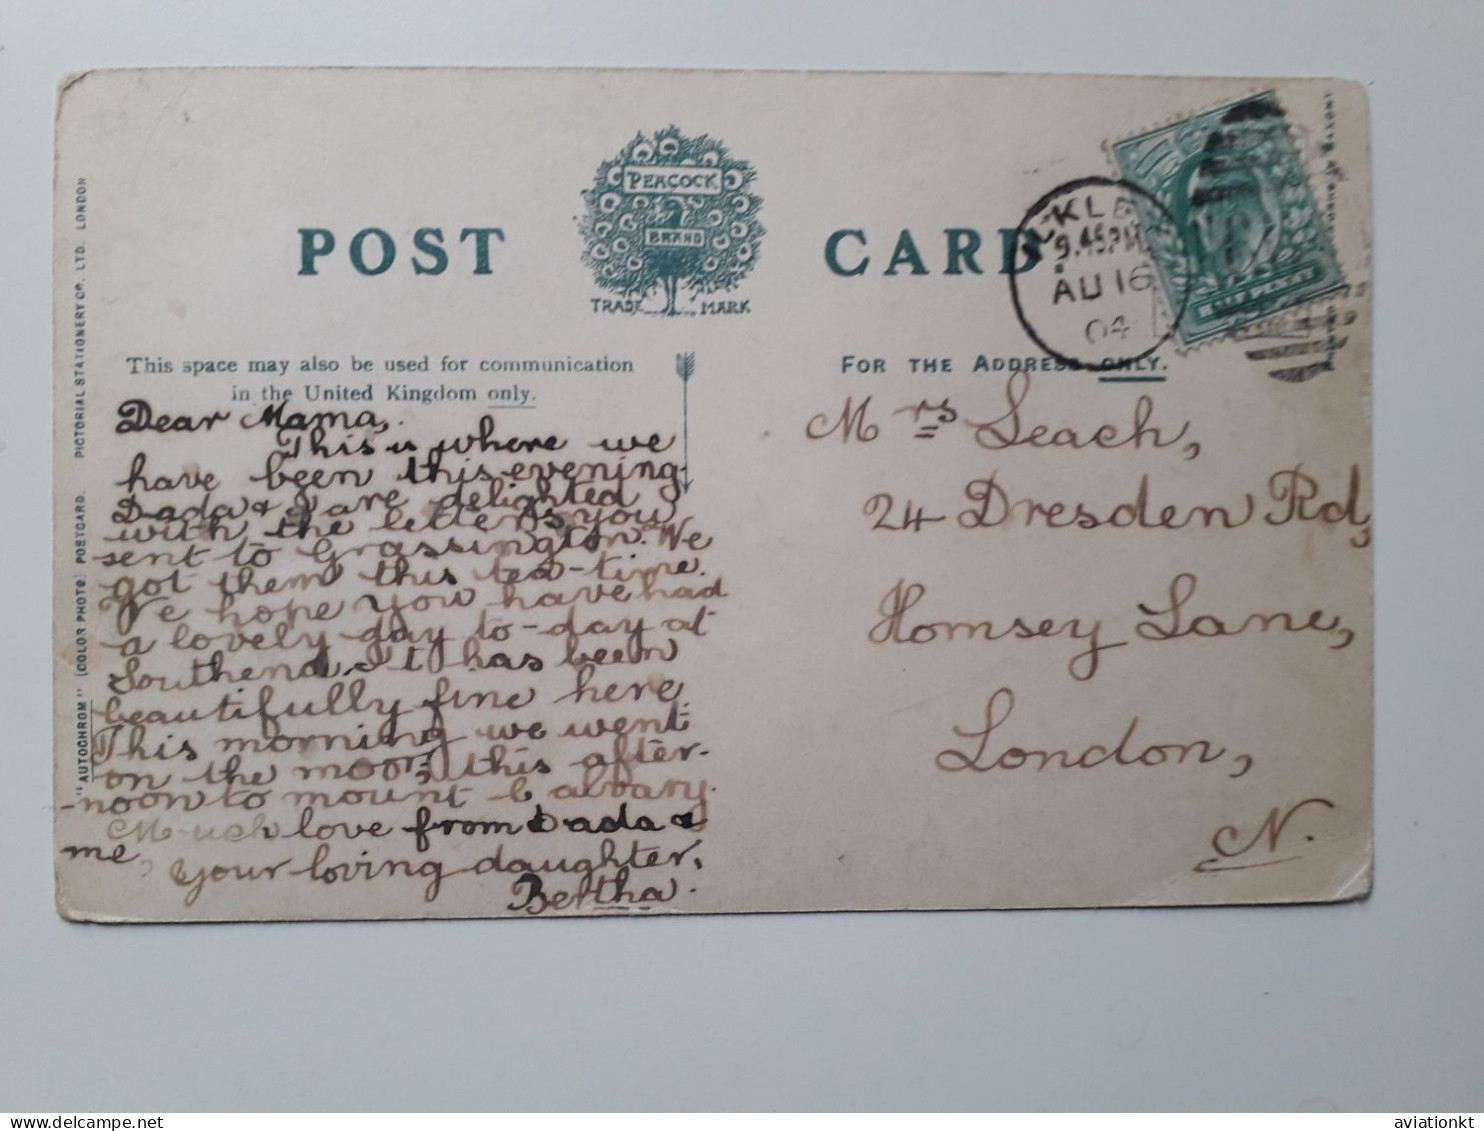 POST CARD
PEACOCK
BRAND
TRADE MARK
This space may also be used for communication
in the United Kingdom only.
FOR THE ADDRESS ONLY.
"AUTOCHROM" (COLOR PHOTO) POSTCARD. PICTORIAL STATIONERY CO. LTD. LONDON
9.45PM
AU 16
04
HALF PENNY
Dear Mama,
This is where we
have been this evening.
Dada & I are delighted
with the letters you
sent to Grassington. We
got them this tea-time.
We hope you have had
a lovely day to-day at
Southend. It has been
beautifully fine here.
This morning we went
on the moor, this after-
-noon to mount Calvary.
Much love from Dada &
me,
Your loving daughter,
Bertha.
Mrs Leach,
24 Dresden Rd,
Hornsey Lane,
London,
N.
aviationkt